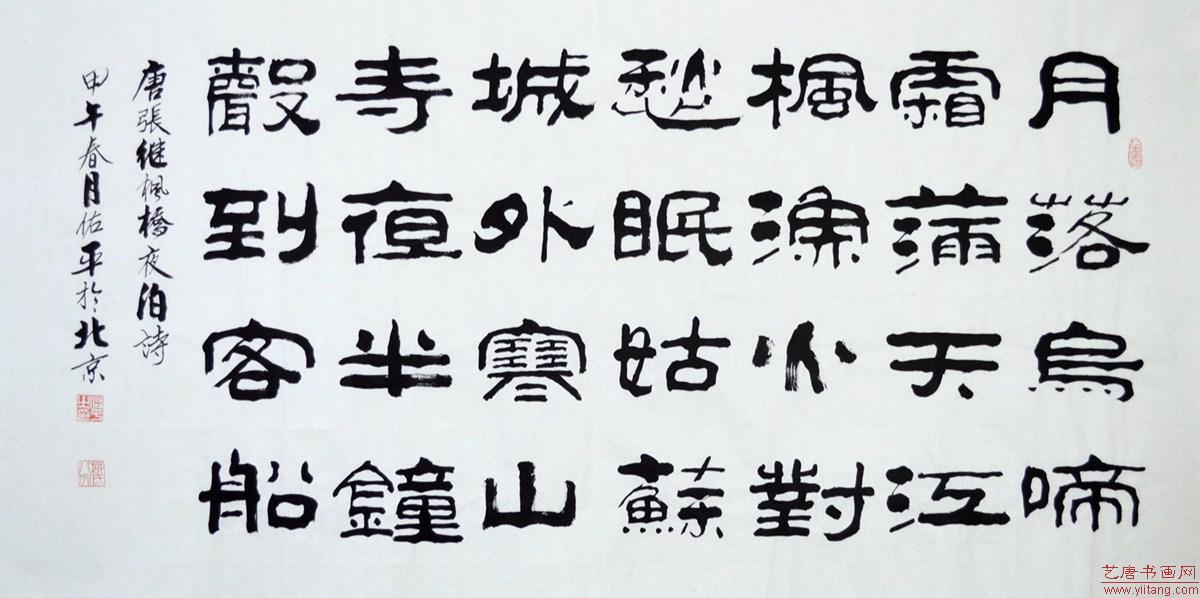 月落烏啼
霜滿天江
楓漁火對
愁眠姑蘇
城外寒山
寺夜半鐘
聲到客船
唐張继楓橋夜泊詩
甲午春月佑平於北京
艺唐书画网
www.yiitang.com